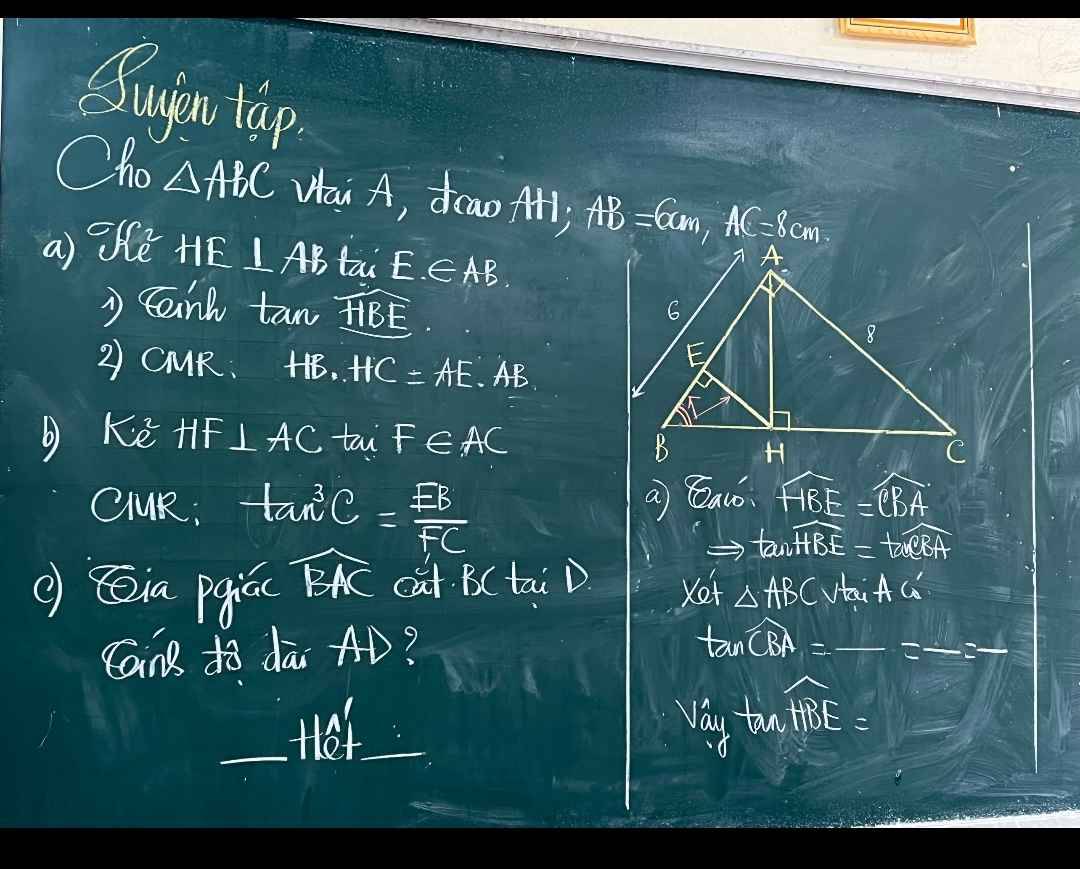 Luyện tập.
Cho △ABC vtại A, đcao AH; AB = 6cm, AC = 8cm.
a) Kẻ HE ⊥ AB tại E. ∈ AB.
1) Tính tan \widehat{HBE}.
2) CMR: HB.HC = AE.AB.
b) Kẻ HF ⊥ AC tại F ∈ AC
CMR: tan³C = \frac{EB}{FC}
c) Tia pgiác \widehat{BAC} cắt BC tại D.
Tính độ dài AD?
Hết
A
6
8
E
B
H
C
a) Ta có: \widehat{HBE} = \widehat{CBA}
⇒ tan\widehat{HBE} = tan\widehat{CBA}
Xét △ABC vtại A có:
tan\widehat{CBA} = — = — = —
Vậy tan \widehat{HBE} =